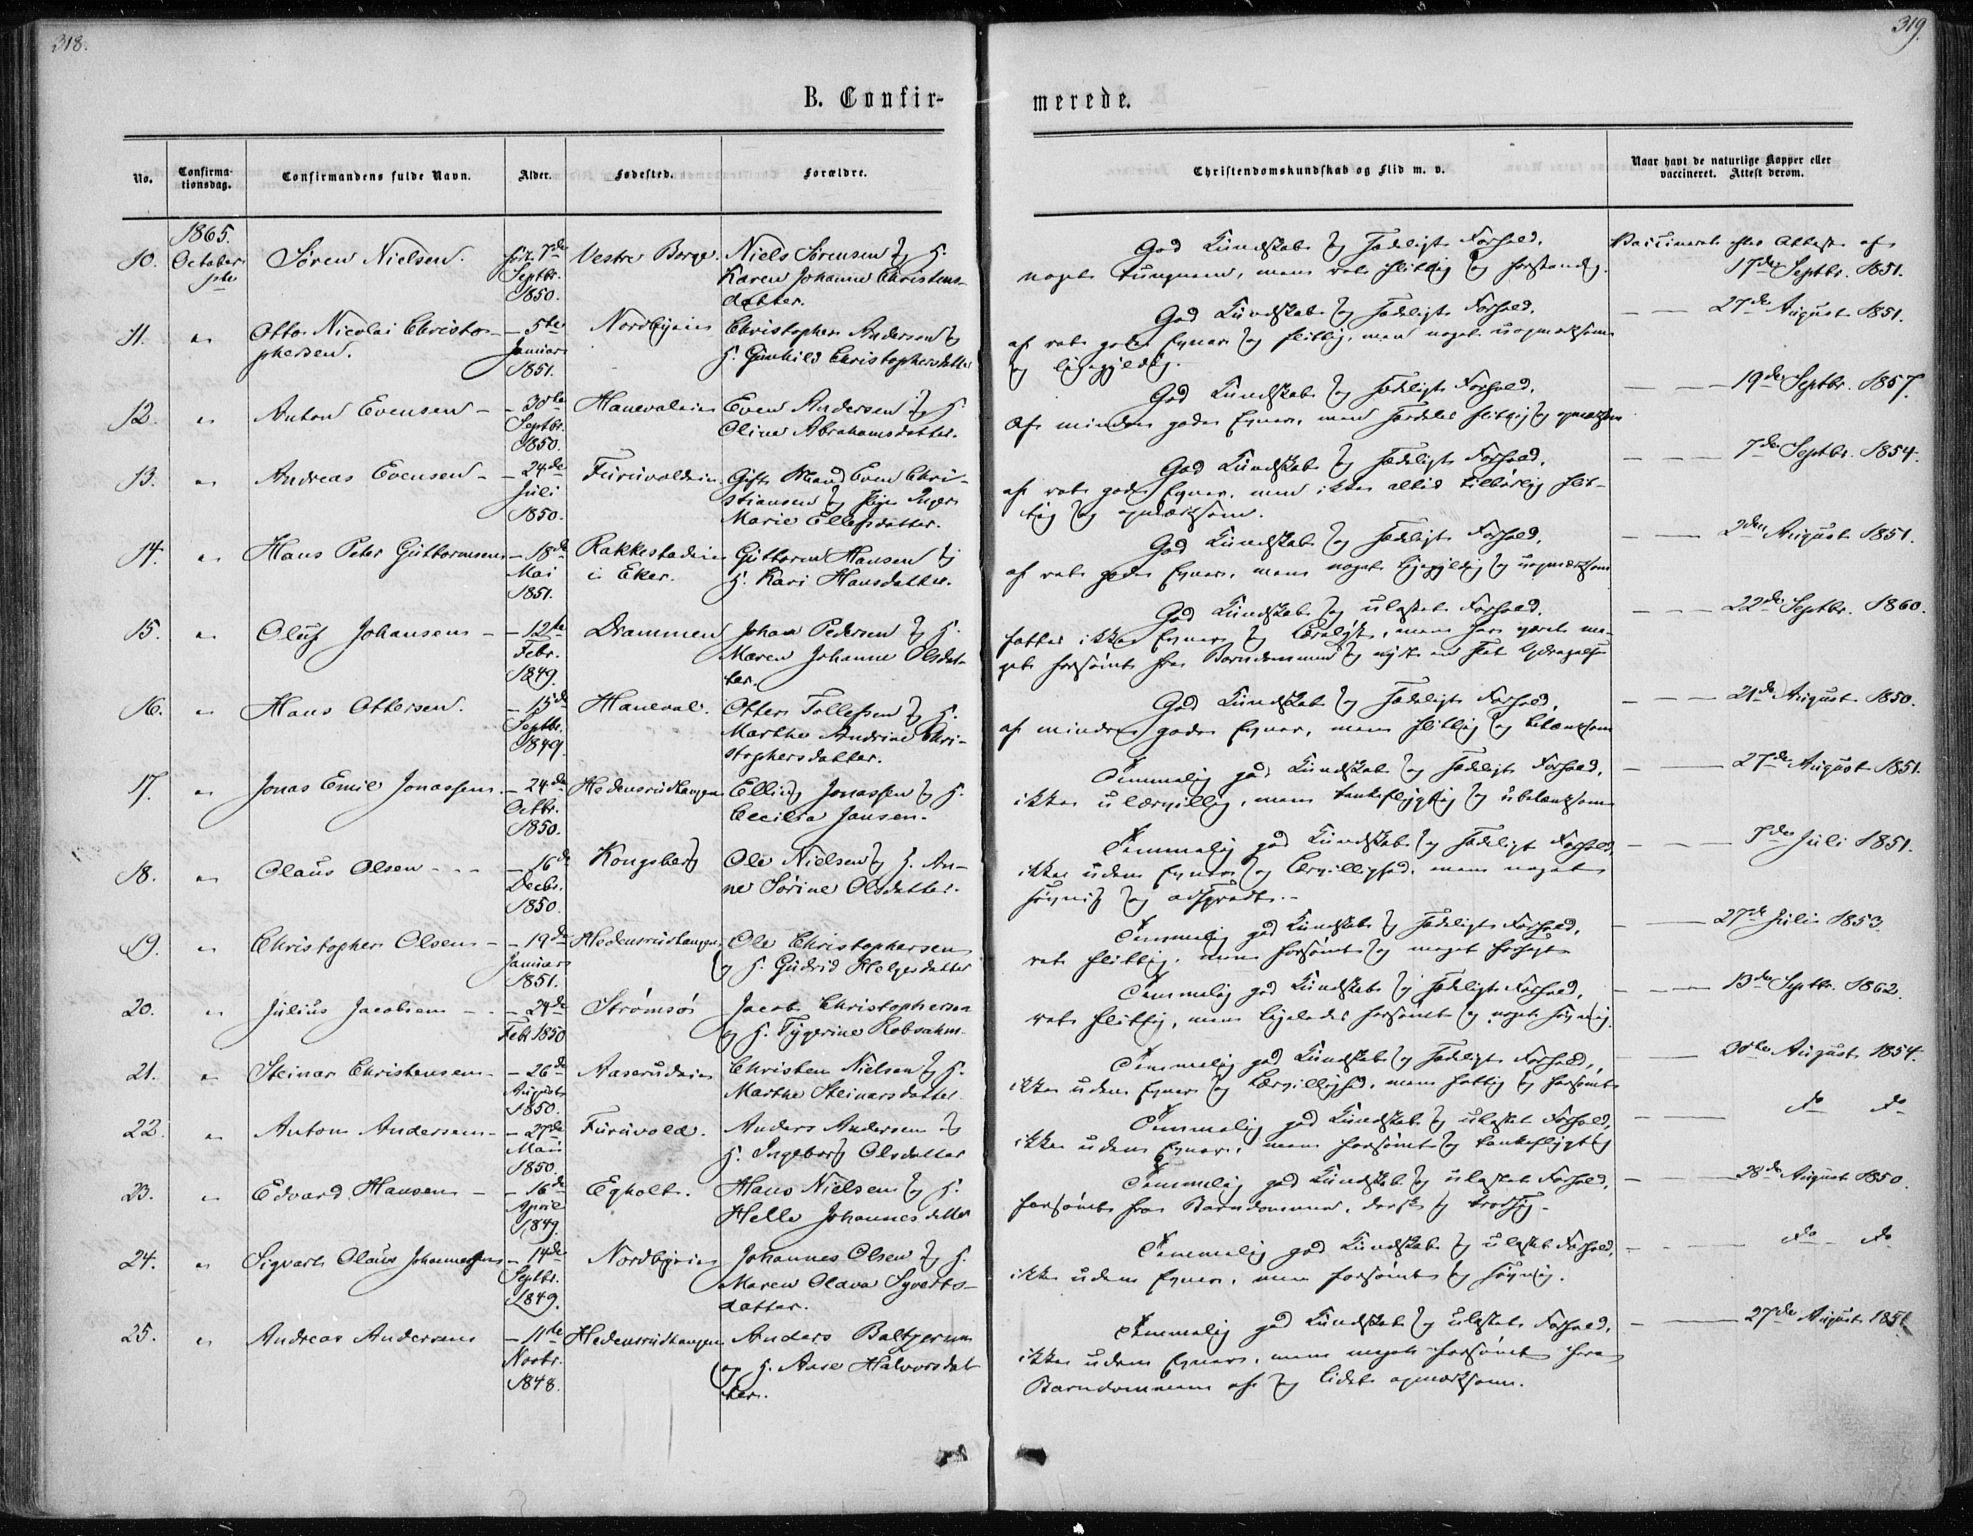 318.
319.
B. Confir-
merede.
No.
Confirma-
tionsdag.
Confirmandens fulde Navn.
Alder.
Fødested.
Forældre.
Christendomskundskab og Flid m. v.
Naar havt de naturlige Kopper eller
vaccineret. Attest derom.
1865.
10. October Søren Nielsen. 7de Vestre Berge. Niels Sørensen og H. God Kundskab og sædeligt Forhold,
1ste Septbr. Karen Johanne Christens- noget tungnem, men flittig og forstandig. 17de Septbr. 1851.
1850. datter.
11. " Otto Nicolai Christo- – 5te Nordbyeie Christopher Andersen og God Kundskab og sædeligt Forhold, — — 27de August 1851.
phersen. Januar H. Gunhild Christophersdatter af gode Evner og flittig, men noget uopmærksom
1851. og ligegyldig.
12. " Anton Evensen – – 30te Hanevaleie Even Andersen og H. God Kundskab og sædeligt Forhold, — — 19de Septbr. 1857.
Septbr. Oline Abrahamsdatter. Af mindre gode Evner, men særdeles flittig og opmærksom
1850.
13. " Andreas Evensen – – 24de Furuvoldeie Gift Mand Even Chri- God Kundskab og sædeligt Forhold, — — 7de Septbr. 1854.
Juli stiansen og Pige Inger af gode Evner, men ikke altid tilbørlig flit-
1850. Marie Ellefsdatter. tig og opmærksom.
14. " Hans Peter Guttormsen – 18de Rakkestadeie Guttorm Hansen og God Kundskab og sædeligt Forhold, — — 2den August 1851.
Mai i Eker. H. Kari Hansdatter. af gode Evner, men noget ligegyldig og uopmærksom
1851.
15. " Oluf Johansen – – 12te Drammen Johan Pedersen og H. God Kundskab og ulastet Forhold, — — 22de Septbr. 1860.
Febr. Maren Johanne Olsdat- fattes ikke Evner og Lærelyst, men har været me-
1849. ter. get forsømt fra Barndommen og nydt en slet Opdragelse
16. " Hans Ottersen. – 15de Haneval. Otter Tollefsen og H. God Kundskab og sædeligt Forhold, — — 21de August 1850.
Septbr. Marthe Andrine Chri- af mindre gode Evner, men flittig og betænksom
1849. stophersdatter.
17. " Jonas Emil Jonassen. – 24de Hedensrudhaugen Elling Jonassen og H. Temmelig god Kundskab og sædeligt Forhold, — — 27de August 1851.
Octbr. Cecilia Jansen. ikke ulærvillig, men tankeflygtig og ubetænksom
1850.
18. " Olaus Olsen – – – – 16de Kongsberg Ole Nielsen og H. An- Temmelig god Kundskab og sædeligt Forhold, — — 7de Juli 1851.
Decbr. ne Sørine Olsdatter. ikke uden Evner og Lærvillighed, men noget
1850. søvnig og adspredt.
19. " Christopher Olsen – – 19de Hedensrudhaugen Ole Christophersen Temmelig god Kundskab og sædeligt Forhold, — — 27de Juli 1853.
Januar og H. Gudrid Helgesdatter flittig, men forsømt og meget
1851.
20. " Julius Jacobsen – – 24de Strømsø Jacob Christophersen Temmelig god Kundskab og sædeligt Forhold, — — 13de Septbr. 1862.
Febr 1850 og H. Robsahm. flittig, men ligeledes forsømt og noget søvnig.
21. " Steinar Christensen – – 26de Aaserudeie Christen Nielsen og H. Temmelig god Kundskab og sædeligt Forhold, — — 30te August 1854.
August Marthe Steinarsdatter. ikke uden Evner og Lærvillighed, men fattig og forsømt
1850.
22. " Anton Andersen – – 27de Furuvold. Anders Andersen og Temmelig god Kundskab og ulastet Forhold, — — do do
Mai H. Ingeborg Olsdatter ikke uden Evner, men forsømt og tankeflygtig
1850.
23. " Edvard Hansen – – 16de Egholt. Hans Nielsen og H. Temmelig god Kundskab og ulastet Forhold, — — 28de August 1850.
April Helle Johannesdatter forsømt fra Barndommen, dorsk og
1849.
24. " Sigvart Olaus Johannessen – 14de Nordbyeie Johannes Olsen og H. Temmelig god Kundskab og ulastet Forhold, — — do do
Septbr. Maren Olava Syverts- ikke uden Evner, men forsømt og søvnig.
1849. datter.
25. " Andreas Andersen – 11te Hedensrudhaugen Anders Baltzersen Temmelig god Kundskab og ulastet Forhold, — — 27de August 1851
Novbr. og H. Aase Halvorsdat- ikke uden Evner, men meget forsømt fra
1848. ter. Barndommen af og lidet opmærksom.